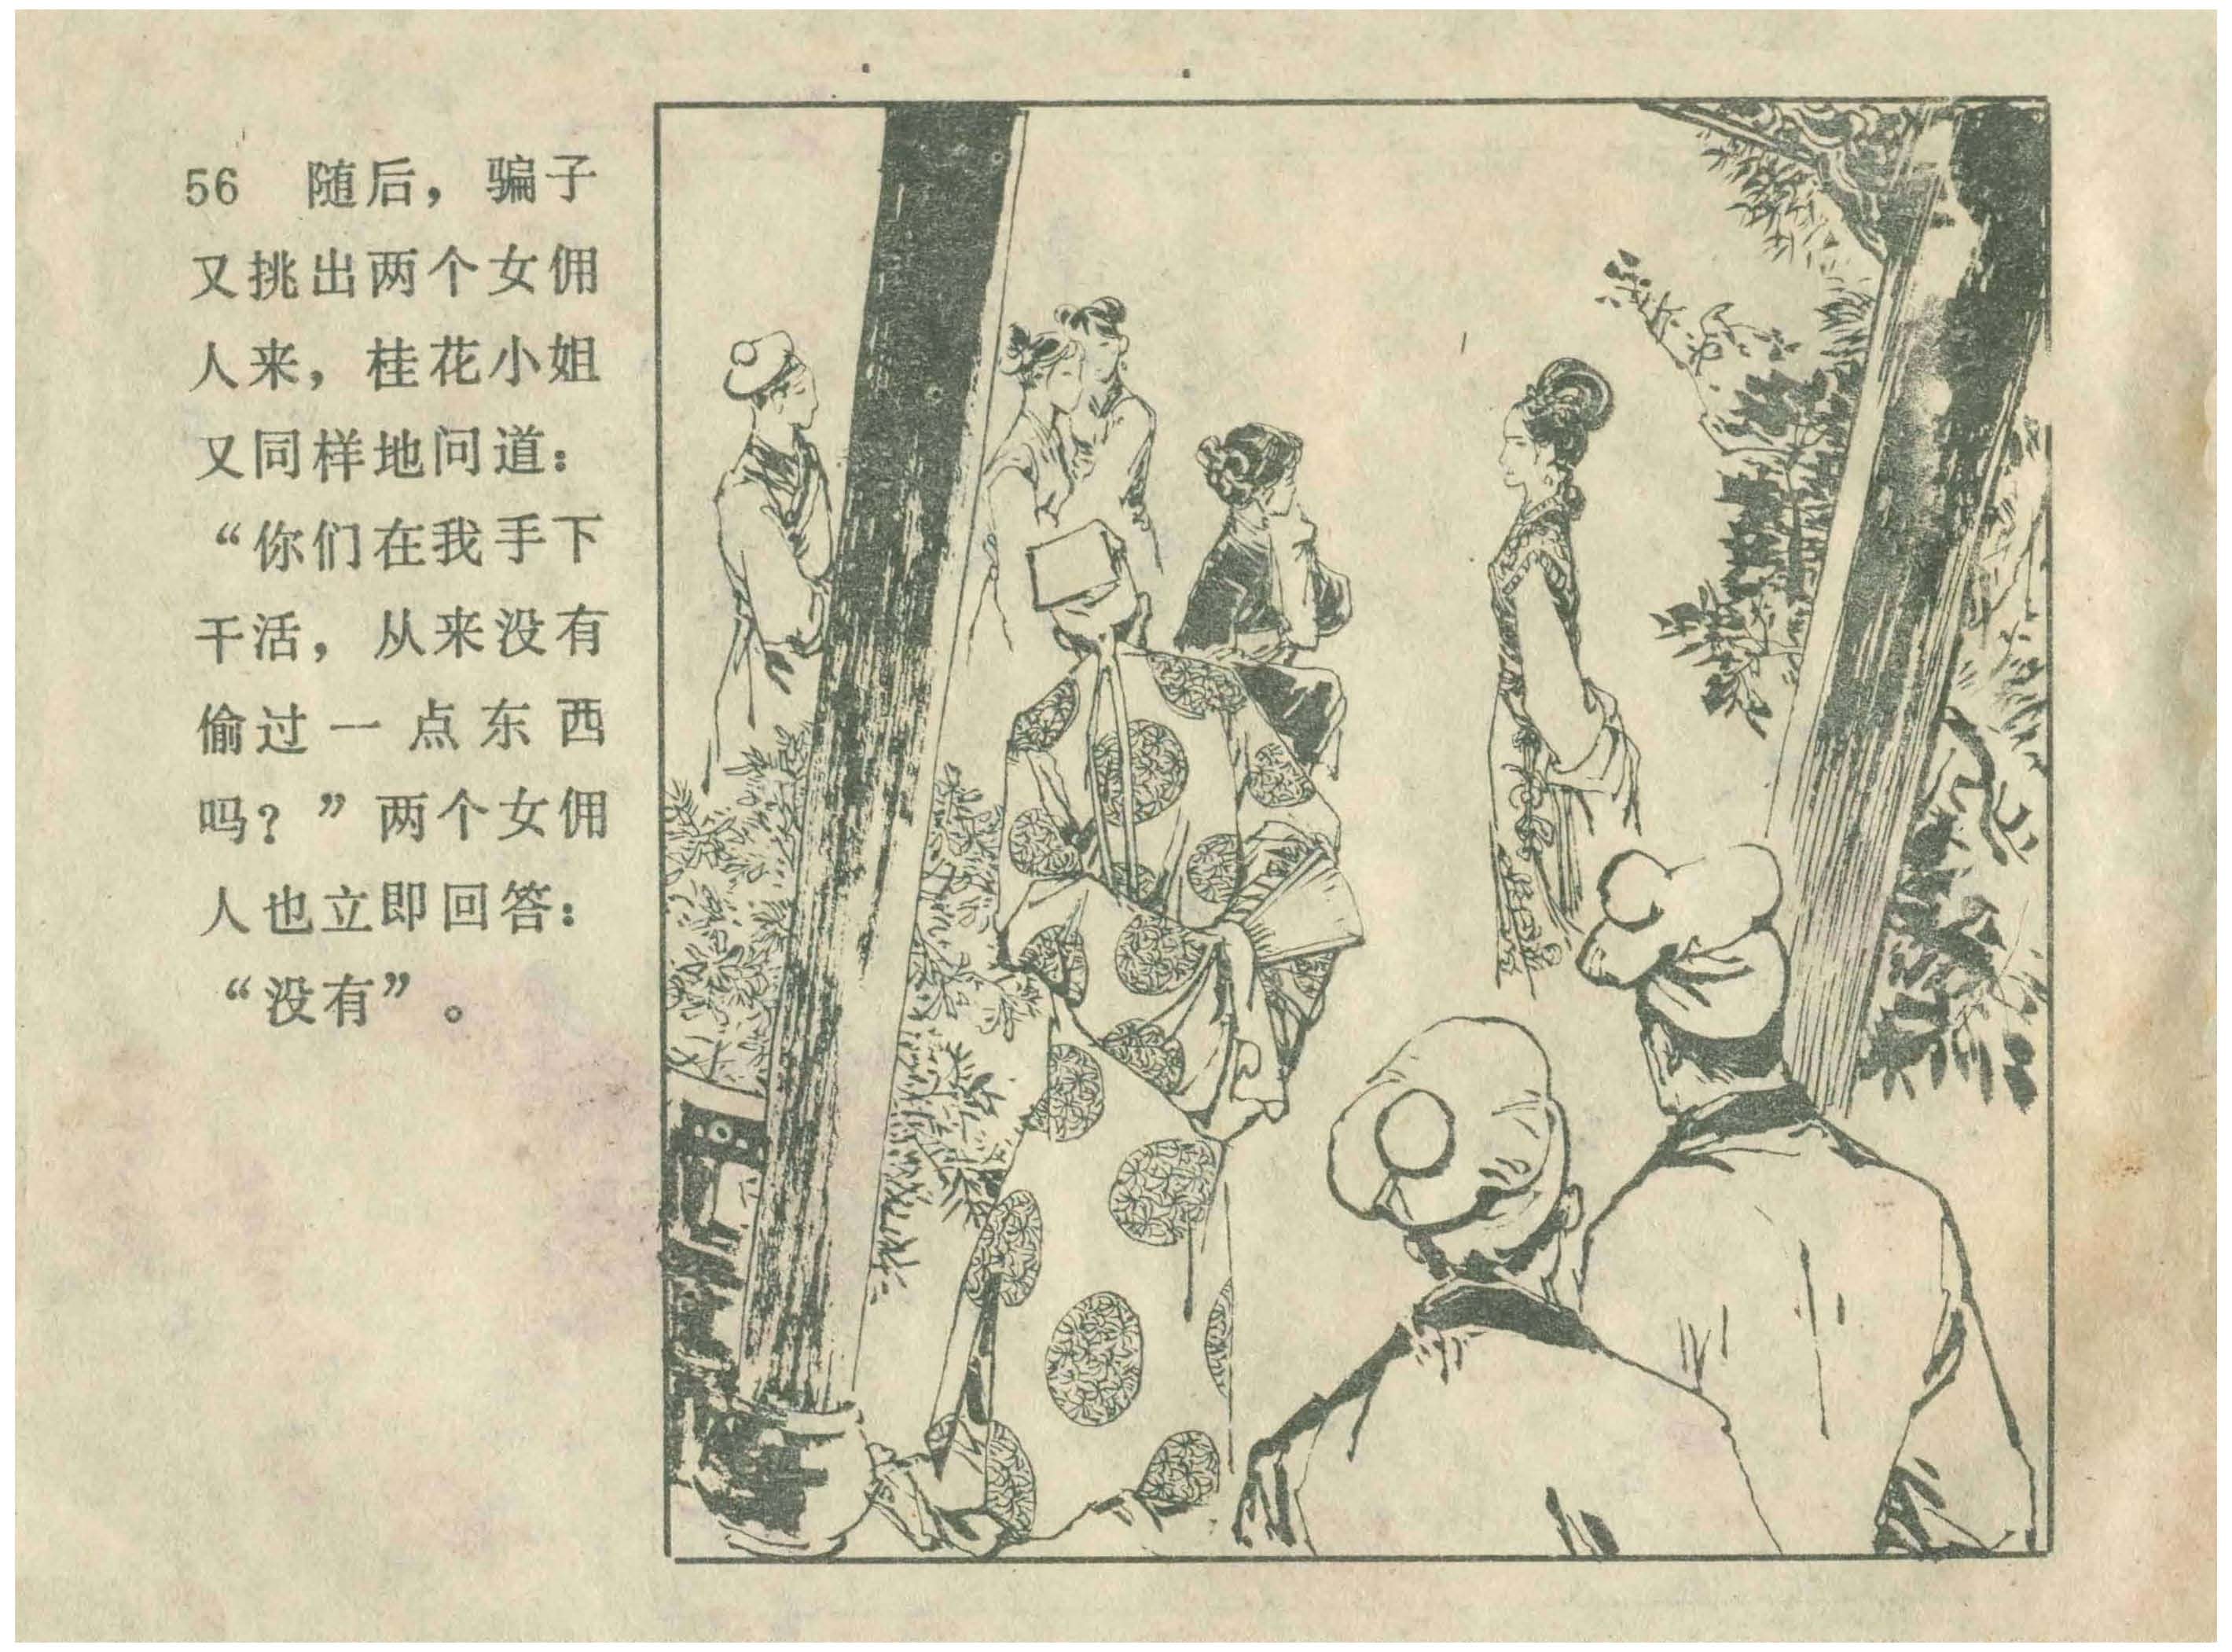 56 随后，骗子
又挑出两个女佣
人来，桂花小姐
又同样地问道：
“你们在我手下
干活，从来没有
偷过一点东西
吗？”两个女佣
人也立即回答：
“没有”。